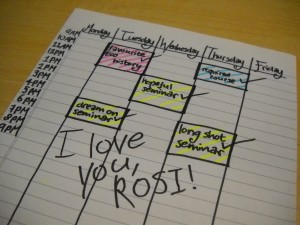 Monday Tuesday Wednesday Thursday Friday
9AM
10AM
11AM
12PM
1PM
2PM
3PM
4PM
5PM
6PM
7PM
8PM
9PM
favourite
too
history
required
course
hopeful
seminar
dream on
seminar
long shot
seminar
I love
you,
ROSI!